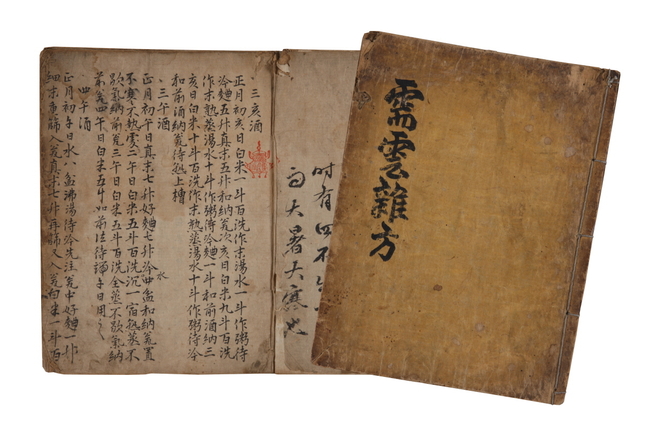 需雲雜方
時有四不
而大暑大寒也
三亥酒
正月初亥日白米一斗百洗作末湯水一斗作粥待
冷麯五升真末五升和納瓮次亥日白米九斗百洗
作末熟蒸湯水十斗作粥待冷麯一斗和前酒納三
亥日白米十斗百洗作末熟蒸湯水十斗作粥待冷
和前酒納瓮待熟上槽
三午酒
正月初午日真末七升好麯七升冷水四盆和納瓮置
不寒不熱處二午日白米五斗百洗沉一宿熟蒸不
歇氣納前瓮三午日白米五斗百洗全蒸不歇氣納
前瓮四午日白米五斗如前法待端午日用之
四午酒
正月初午日水八盆沸湯待冷先注瓮中好麯一升
細末重篩入瓮真末七升再篩又入瓮白米一斗百